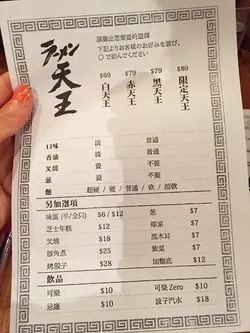 ラーメン
天王
請圈出您需要的選擇
下記よりお客様のお好みを選び、
○で囲んでください
$69 $79 $79 $89
白天王 赤天王 黑天王 限定天王
口味 淡 普通
香油 淡 普通
叉燒 要 不要
蔥 要 不要
麵 超硬 / 硬 / 普通 / 軟 / 超軟
另加選項
味蛋 (半/全只) $6 / $12
芝士年糕 $12
叉燒 $18
豚角煮 $25
煎餃子 $28
蔥 $7
椰菜 $7
黑木耳 $7
紫菜 $7
加麵底 $12
飲品
可樂 $10
忌廉 $10
可樂 Zero $10
波子汽水 $18